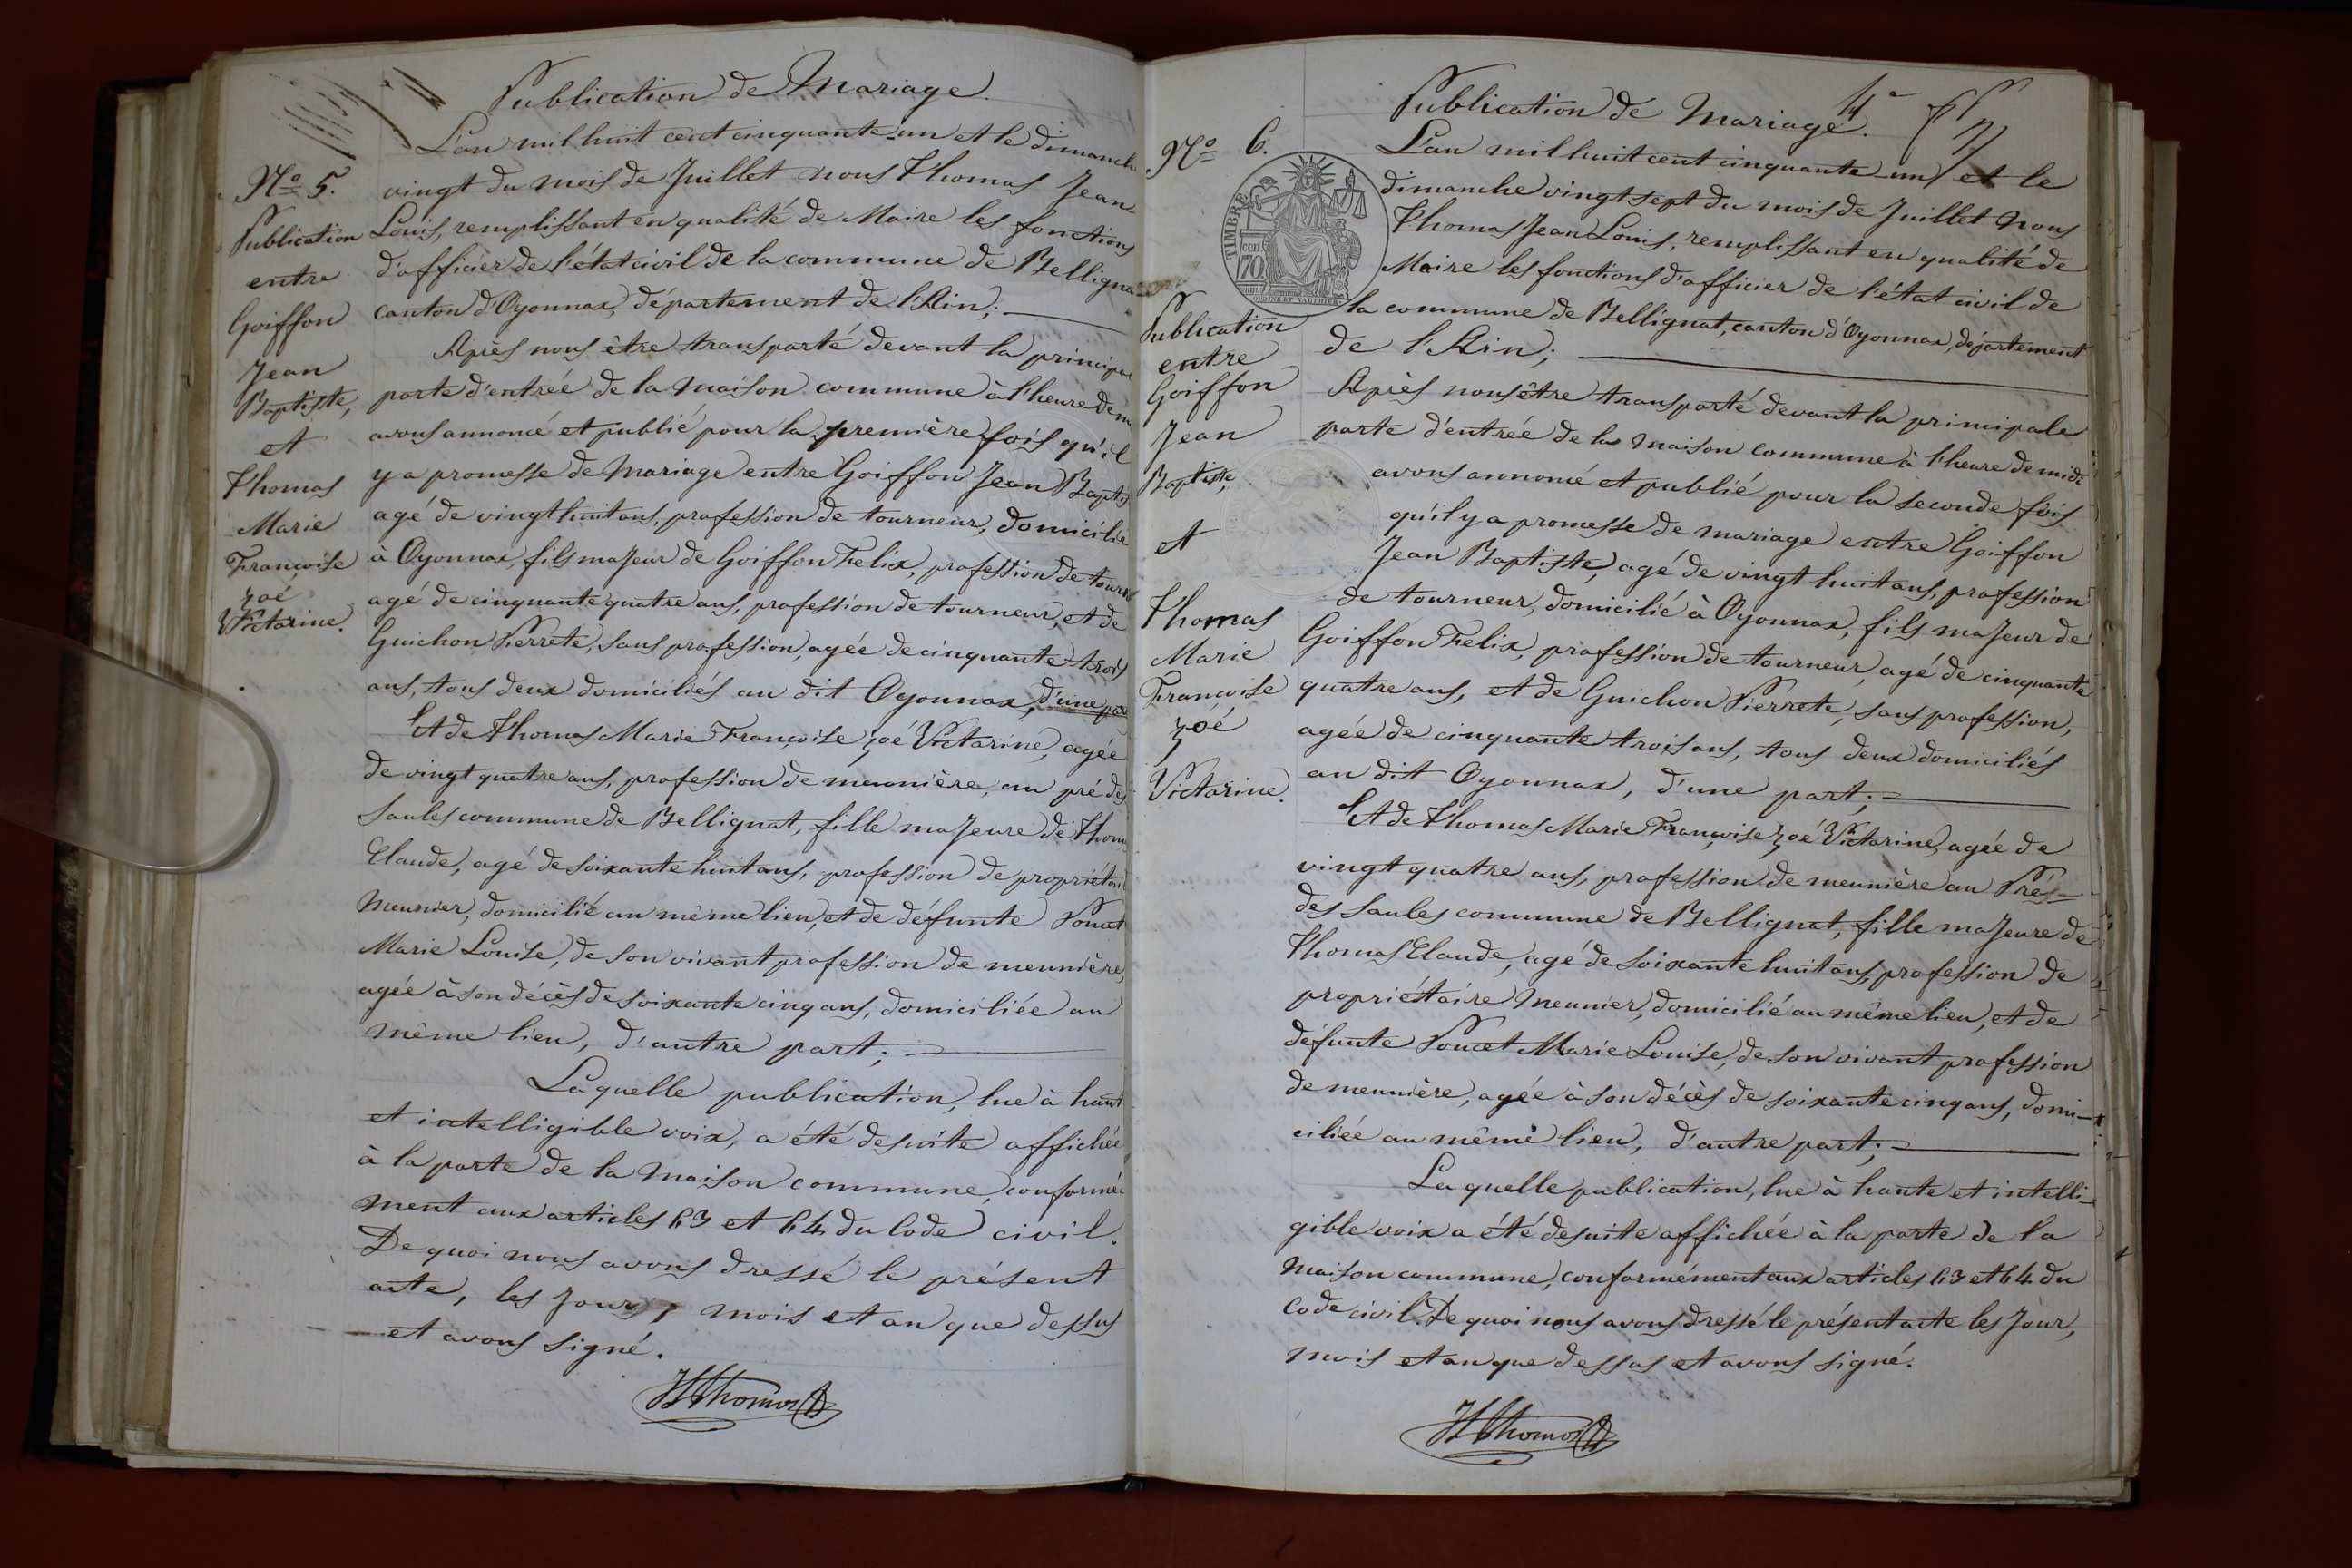 Publication de Mariage.
L'an mil huit cent cinquante un et le dimanche
vingt du mois de Juillet nous Thomas Jean-
Louis, remplissant en qualité de Maire les fonctions
d'officier de l'état civil de la commune de Bellignat
canton d'Oyonnax, département de l'Ain;
Après nous être transporté devant la principale
porte d'entrée de la maison commune à l'heure de midi
avons annoncé et publié pour la première fois qu'il
y a promesse de Mariage entre Goiffon Jean Baptiste
agé de vingt huit ans, profession de tourneur, domicilié
à Oyonnax, fils majeur de Goiffon Felix, profession de tourneur
agé de cinquante quatre ans, profession de tourneur, et de
Guichon Pierrete, sans profession, agée de cinquante trois
ans, tous deux domiciliés au dit Oyonnax, d'une part
Et de Thomas Marie Françoise Zoé Victorine, agée
de vingt quatre ans, profession de meunière, au pré des
Saules commune de Bellignat, fille majeure de Thomas
Claude, agé de soixante huit ans, profession de propriétaire
Meunier, domicilié au même lieu, et de défunte Poncet
Marie Louise, de son vivant profession de meunière,
agée à son décès de soixante cinq ans, domiciliée au
même lieu, d'autre part;
Laquelle publication, lue à haute
et intelligible voix, a été de suite affichée
à la porte de la maison commune, conformé-
ment aux articles 63 et 64 du Code civil.
De quoi nous avons dressé le présent
acte, les jour, mois et an que dessus
et avons signé.
JLThomas
No 5.
Publication
entre
Goiffon
Jean
Baptiste,
et
Thomas
Marie
Françoise
Zoé
Victorine.
Publication de Mariage.
L'an mil huit cent cinquante un et le
dimanche vingt sept du mois de Juillet Nous
Thomas Jean Louis, remplissant en qualité de
Maire les fonctions d'officier de l'état civil de
la commune de Bellignat, canton d'Oyonnax, département
de l'Ain;
Après nous être transporté devant la principale
porte d'entrée de la maison commune à l'heure de midi
avons annoncé et publié pour la seconde fois
qu'il y a promesse de mariage entre Goiffon
Jean Baptiste, agé de vingt huit ans, profession
de tourneur, domicilié à Oyonnax, fils majeur de
Goiffon Felix, profession de tourneur, agé de cinquante
quatre ans, et de Guichon Pierrete, sans profession,
agée de cinquante trois ans, tous deux domiciliés
au dit Oyonnax, d'une part;
Et de Thomas Marie Françoise Zoé Victorine, agée de
vingt quatre ans, profession de meunière au Pré-
des Saules commune de Bellignat, fille majeure de
Thomas Claude, agé de soixante huit ans, profession de
propriétaire Meunier, domicilié au même lieu, et de
défunte Poncet Marie Louise, de son vivant profession
de meunière, agée à son décès de soixante cinq ans, domi-
ciliée au même lieu, d'autre part;
Laquelle publication, lue à haute et intelli-
gible voix a été de suite affichée à la porte de la
Maison commune, conformément aux articles 63 et 64 du
Code civil. De quoi nous avons dressé le présent acte les jour,
mois et an que dessus et avons signé.
JLThomas
No 6.
TIMBRE
cen
70
Publication
entre
Goiffon
Jean
Baptiste,
et
Thomas
Marie
Françoise
Zoé
Victorine.